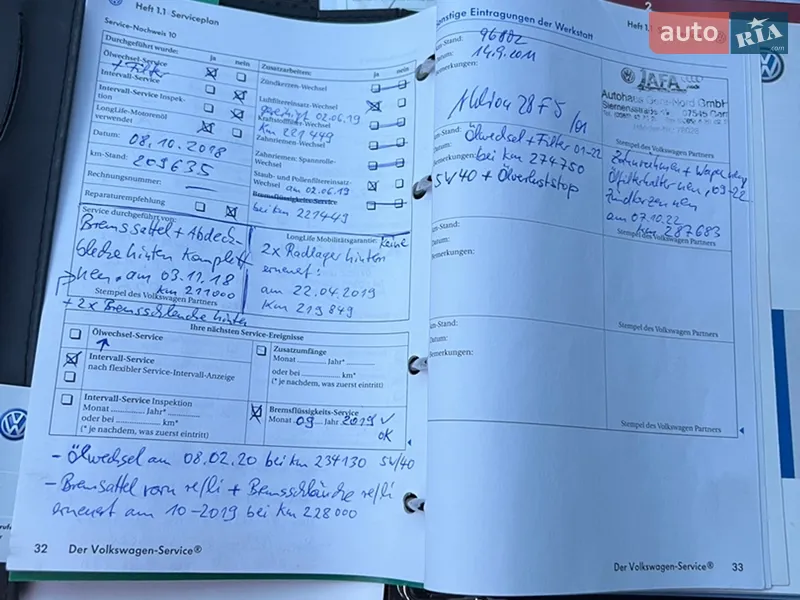 Heft 1.1 Serviceplan
Service-Nachweis 10
Durchgeführt wurde:
ja nein
Ölwechsel-Service
+ Filter
Intervall-Service
Intervall-Service Inspek-
tion
LongLife-Motorenöl
verwendet
Datum: 08.10.2018
km-Stand: 209635
Rechnungsnummer: —
Reparaturempfehlung
Zusatzarbeiten:
ja nein
Zündkerzen-Wechsel
Luftfiltereinsatz-Wechsel
02.06.19
Kraftstofffilter-Wechsel
km 221449
Zahnriemen-Wechsel
Zahnriemen- Spannrolle-
Wechsel
Staub- und Pollenfiltereinsatz-
Wechsel am 02.06.19
Bremsflüssigkeits-Service
bei km 221449
Service durchgeführt von:
Bremssattel + Abdeck-
bleche hinten komplett
neu. am 03.11.18
km 211000
Stempel des Volkswagen Partners
+ 2x Bremsschläuche hinten
LongLife Mobilitätsgarantie: keine
2x Radlager hinten
erneut:
am 22.04.2019
km 219849
Ihre nächsten Service-Ereignisse
Ölwechsel-Service
Intervall-Service
nach flexibler Service-Intervall-Anzeige
Intervall-Service Inspektion
Monat ............ Jahr* ............
oder bei ............ km*
(* je nachdem, was zuerst eintritt)
Zusatzumfänge
Monat ............ Jahr* ............
oder bei ............ km*
(* je nachdem, was zuerst eintritt)
Bremsflüssigkeits-Service
Monat 09 Jahr 2019 ✓
OK
- Ölwechsel am 08.02.20 bei km 234130 5W/40
- Bremsattel vorn re/li + Bremsschläuche re/li
erneuert am 10-2019 bei km 228000
32 Der Volkswagen-Service®
Sonstige Eintragungen der Werkstatt
Heft 1.1
km-Stand: 96802
Datum: 14.9.2011
Bemerkungen:
Aktion 28F5 /01
JAFA
Stempel des Volkswagen Partners
km-Stand: Ölwechsel + Filter 01-22
Datum:
Bemerkungen: bei km 274750
5W40 + Ölverluststop
Zahnriemen + Wapu neu
Ölfilterhalter neu, 09-22
Zündkerzen neu
am 07.10.22
km 287683
Stempel des Volkswagen Partners
km-Stand:
Datum:
Bemerkungen:
Stempel des Volkswagen Partners
km-Stand:
Datum:
Bemerkungen:
Stempel des Volkswagen Partners
Der Volkswagen-Service® 33
auto RIA.com